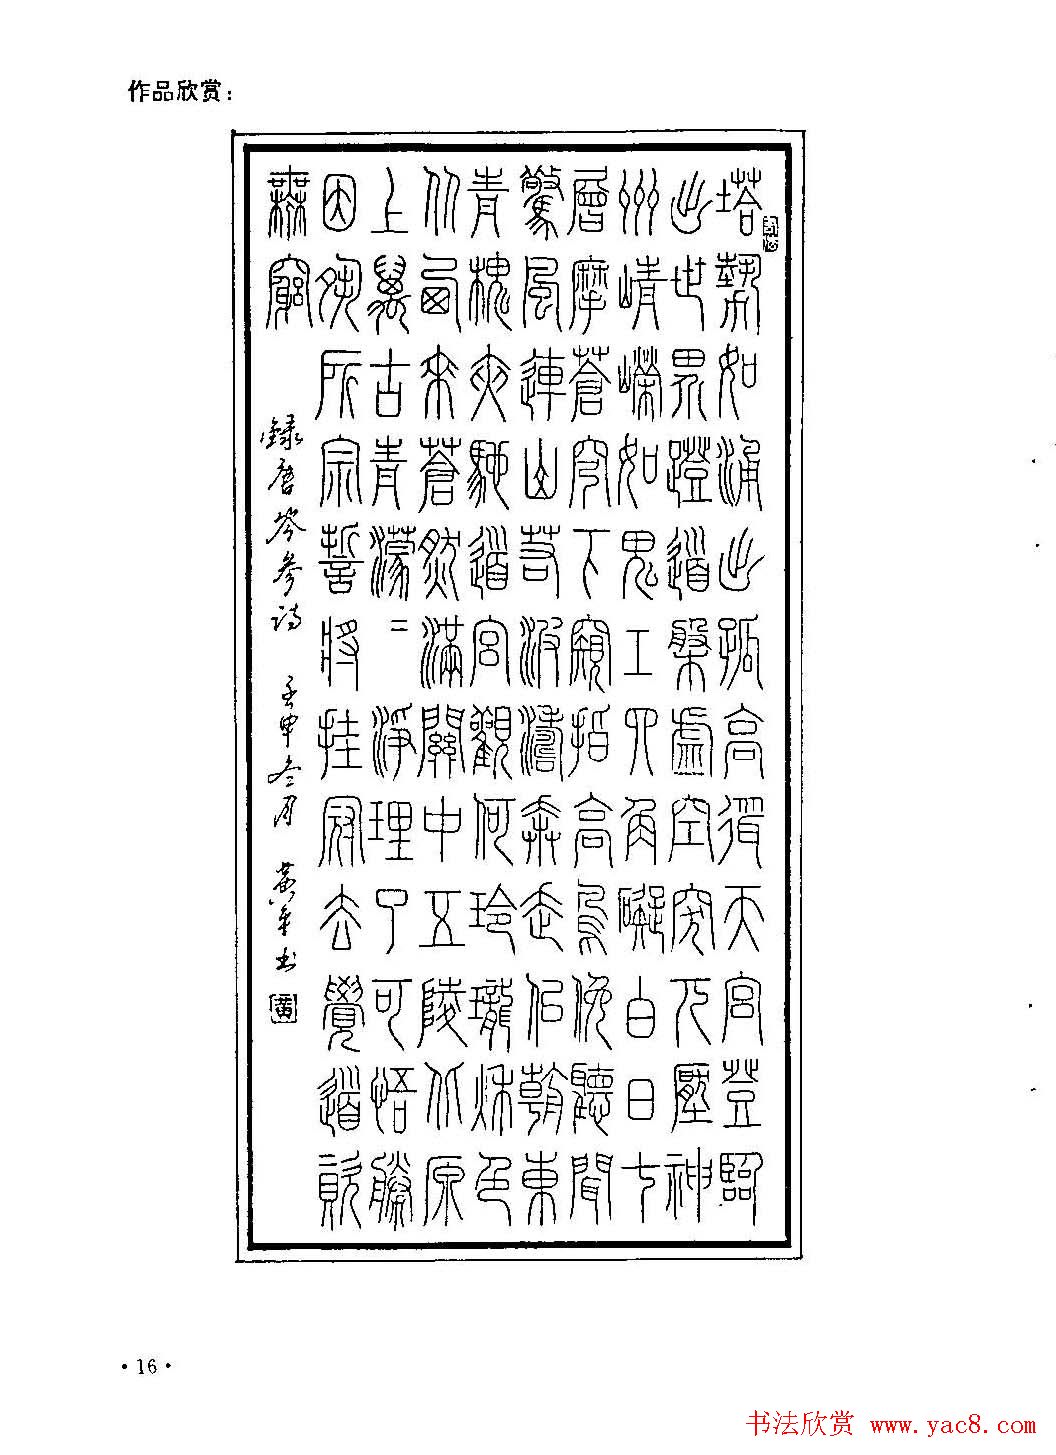 作品欣赏：
塔勢如涌出孤高聳天宮登臨
出世界蹬道盤虛空突兀壓神
州崢嶸如鬼工四角礙白日七
層摩蒼穹下窺指高鳥俛聽聞
驚風連山若波濤奔走佀朝東
青槐夾馳道宮觀何玲瓏秋色
从西來蒼然滿關中五陵北原
上萬古青濛〻淨理了可悟勝
因夙所宗誓將挂冠去覺道資
無窮
錄唐岑參诗 壬申冬月 黄 书
黄
·16·
书法欣赏 www.yac8.com